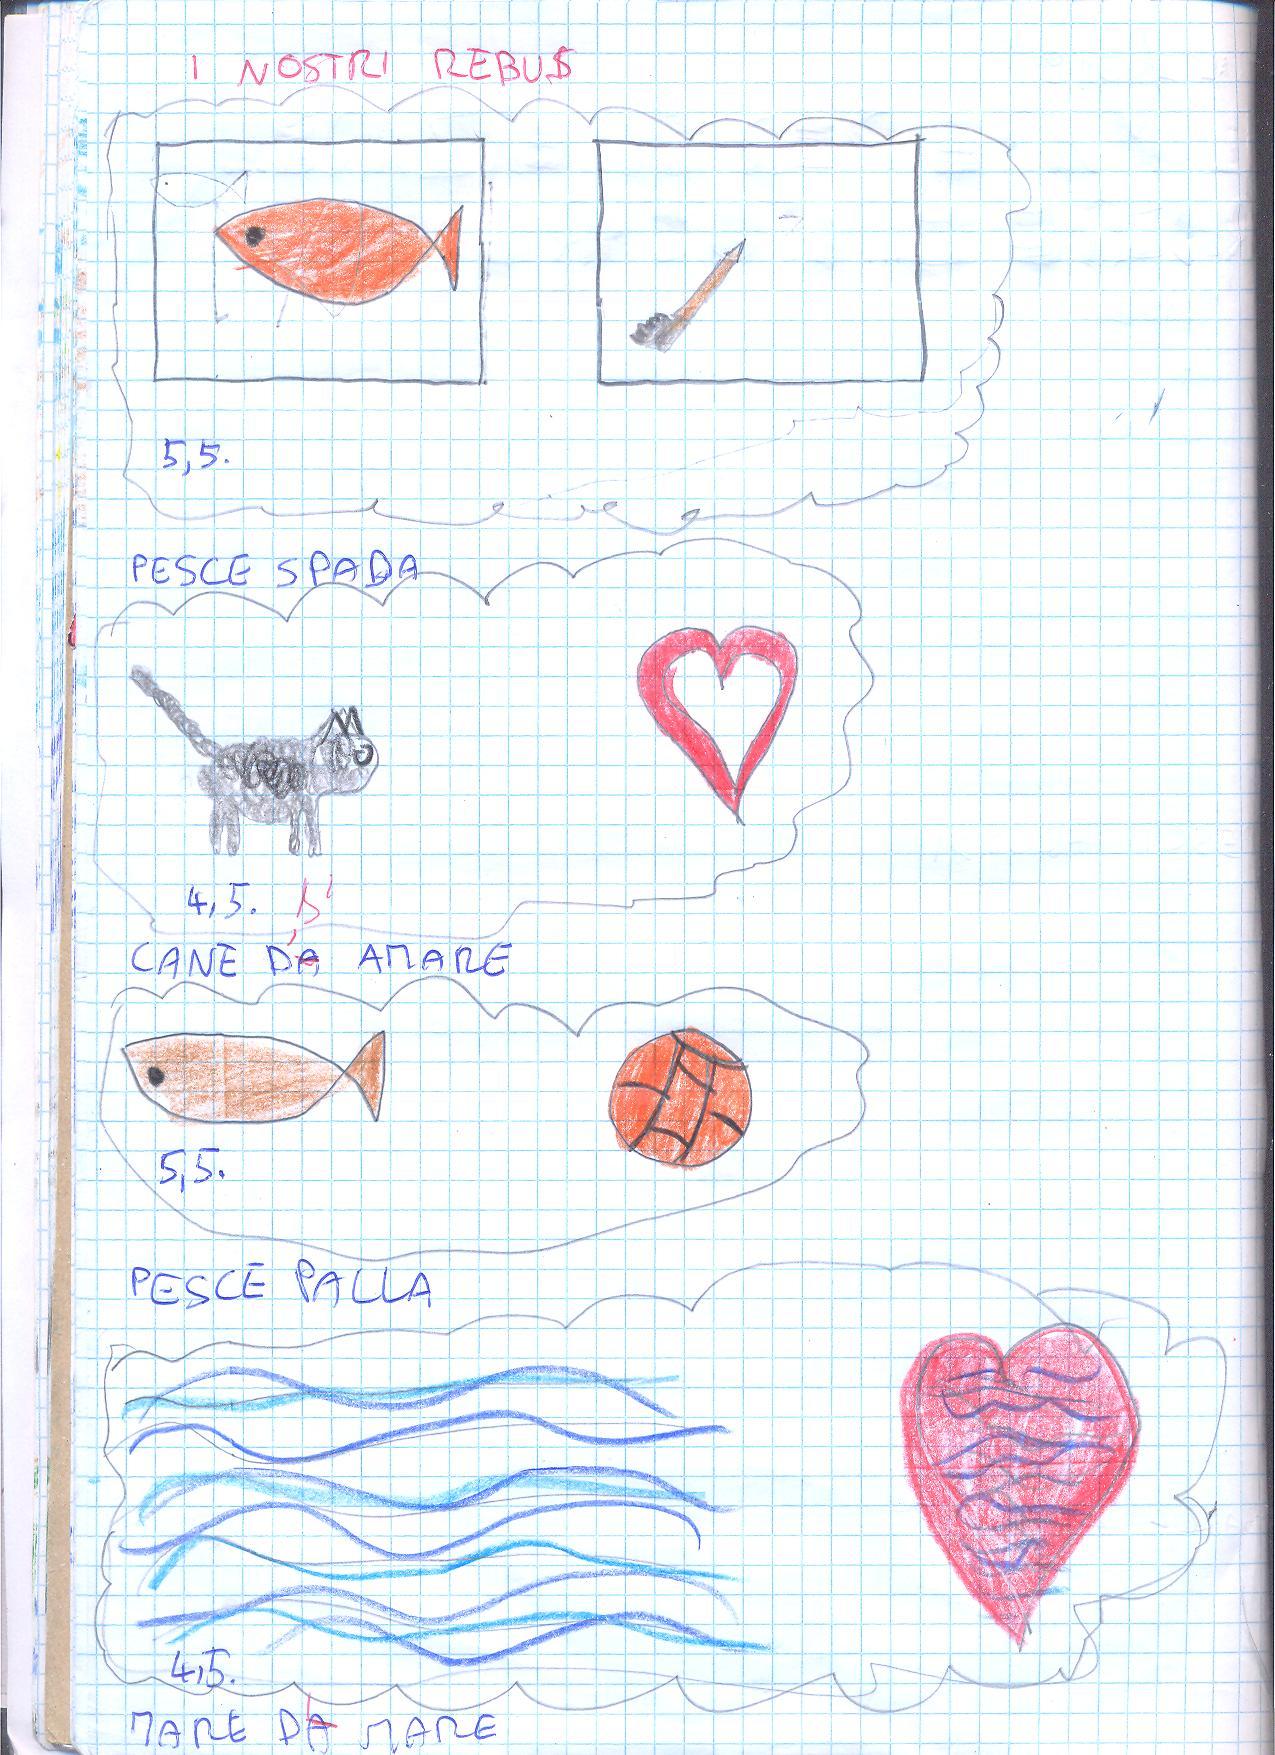 I NOSTRI REBUS
5,5.
PESCE SPADA
4,5. D'
CANE D'A AMARE
5,5.
PESCE PALLA
4,5.
MARE DA MARE